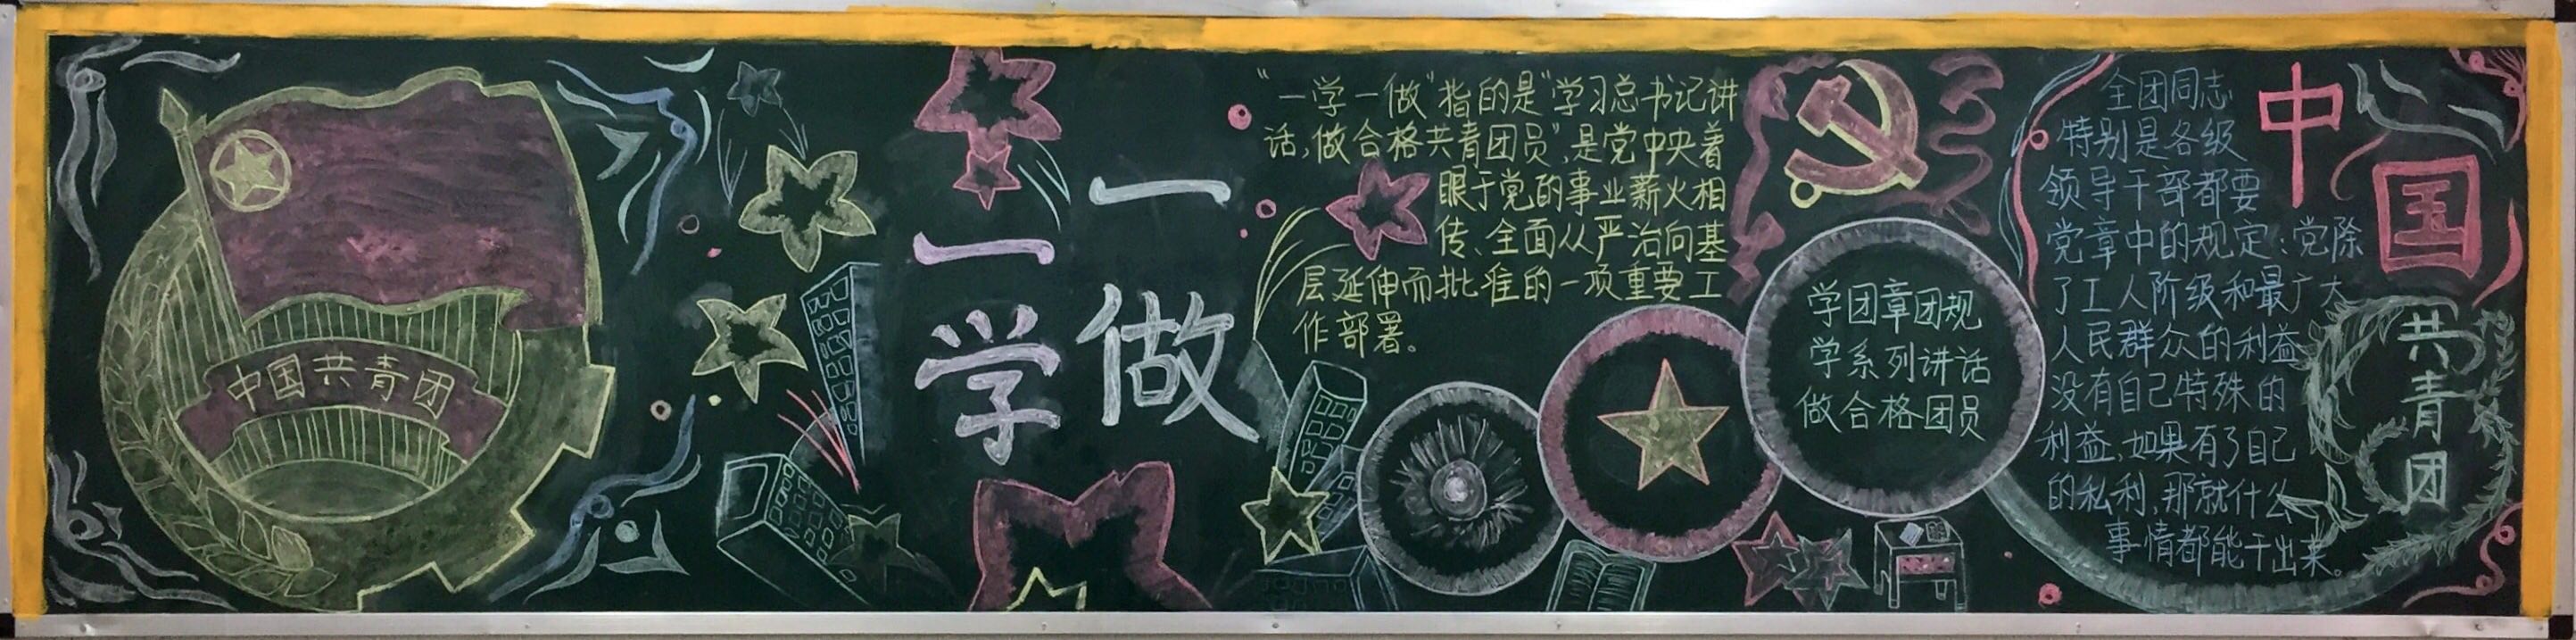 中国共青团
一学
一做
“一学一做”指的是“学习总书记讲
话,做合格共青团员”,是党中央着
眼于党的事业薪火相
传、全面从严治向基
层延伸而批准的一项重要工
作部署。
学团章团规
学系列讲话
做合格团员
全团同志
特别是各级
领导干部都要
党章中的规定:党除
了工人阶级和最广大
人民群众的利益
没有自己特殊的
利益,如果有了自己
的私利,那就什么
事情都能干出来。
中国
共青团